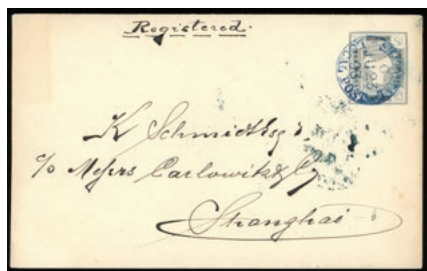 Registered.
LOCAL POST
K Schmidt Esq.
c/o Messrs Carlowitz & Co
Shanghai